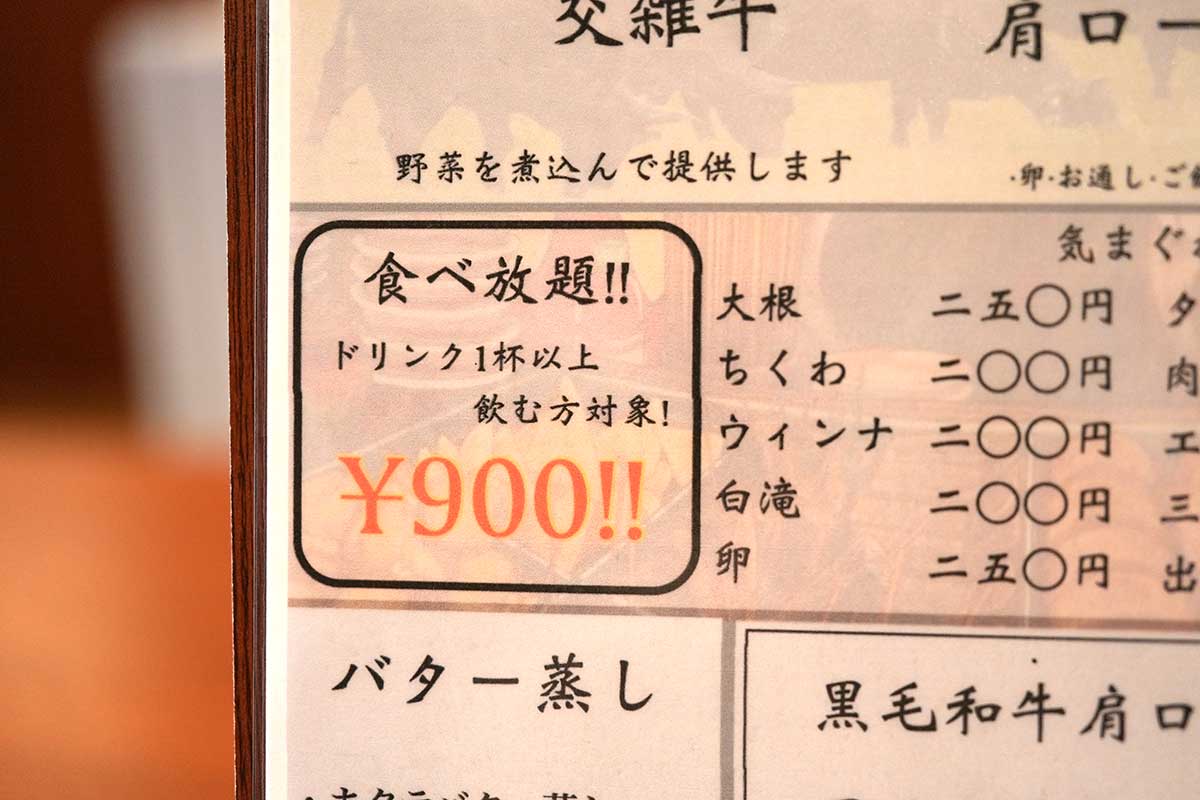 交雑牛
肩ロー
野菜を煮込んで提供します
・卵・お通し・ご
気まぐ
食べ放題!!
ドリンク1杯以上
飲む方対象!
¥900!!
大根 二五〇円
ちくわ 二〇〇円
ウィンナ 二〇〇円
白滝 二〇〇円
卵 二五〇円
タ
肉
エ
三
出
バター蒸し
黒毛和牛肩ロ